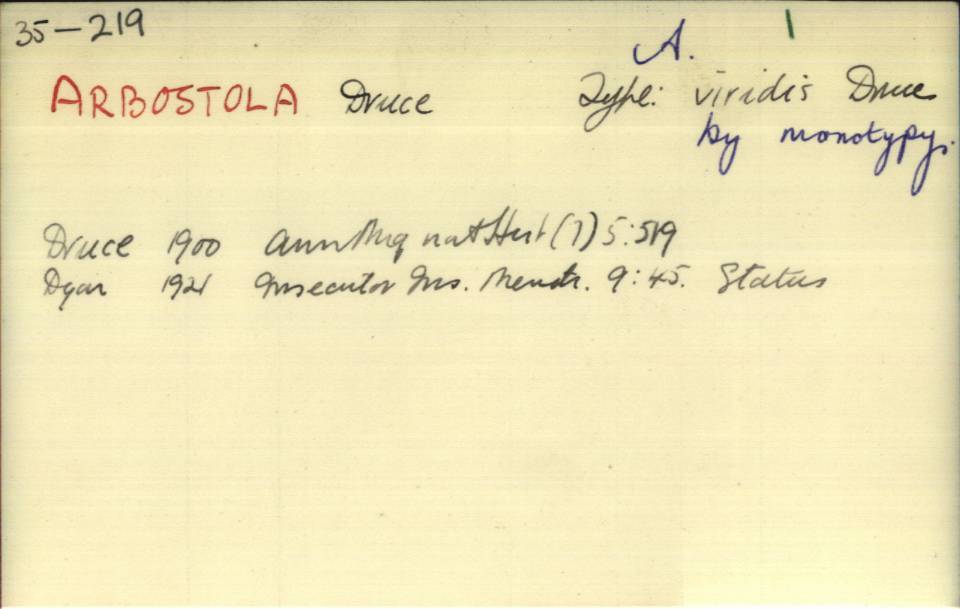 35-219
A. 1
ARBOSTOLA Druce Type: viridis Druce
by monotypy.
Druce 1900 Ann Mag nat Hist (7) 5: 519
Dyar 1921 Insecutor Ins. Menstr. 9: 45. Status